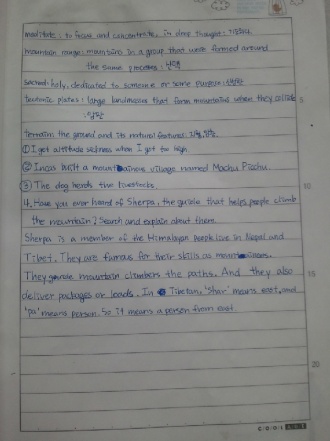 meditate : to focus and concentrate, in deep thought :
mountain range : mountains in a group that were formed around
the same process :
sacred : holy, dedicated to someone or some purpose :
tectonic plates : large landmasses that form mountains when they collide
5
terrain : the ground and its natural features :
① I get altitude sickness when I get too high.
② Incas built a mountainous village named Machu Picchu.
③ The dog herds the livestocks.
10
4. Have you ever heard of Sherpa, the guide that helps people climb
the mountain? Search and explain about them.
Sherpa is a member of the Himalayan people live in Nepal and
Tibet. They are famous for their skills as mountaineers.
They guide mountain climbers the paths. And they also
15
deliver packages or loads. In Tibetan, 'Shar' means east, and
'pa' means person. So it means a person from east.
20